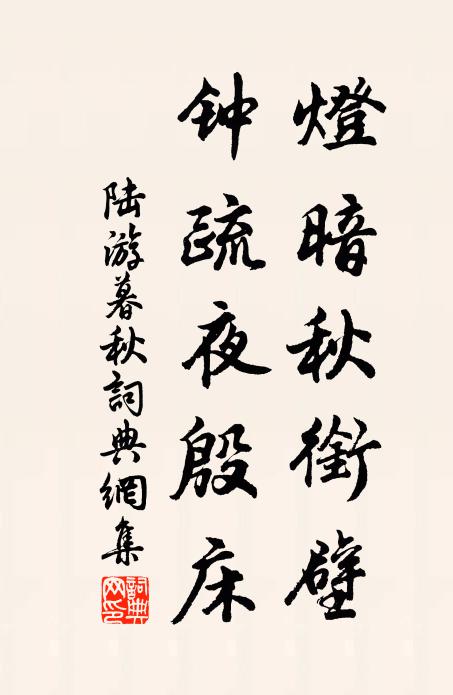 燈暗秋銜壁
钟疏夜殷床
陆游暮秋詞典網集
詞典网印